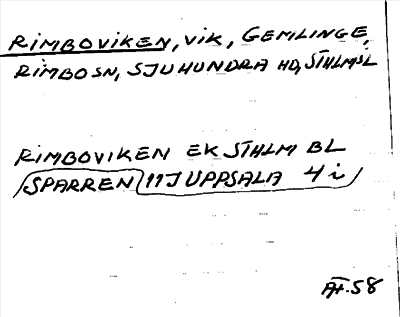 RIMBOVIKEN, VIK, GEMLINGE,
RIMBO SN, SJUHUNDRA HD, STHLMS L
RIMBOVIKEN EK STHLM BL
SPARREN 11J UPPSALA 4i
58